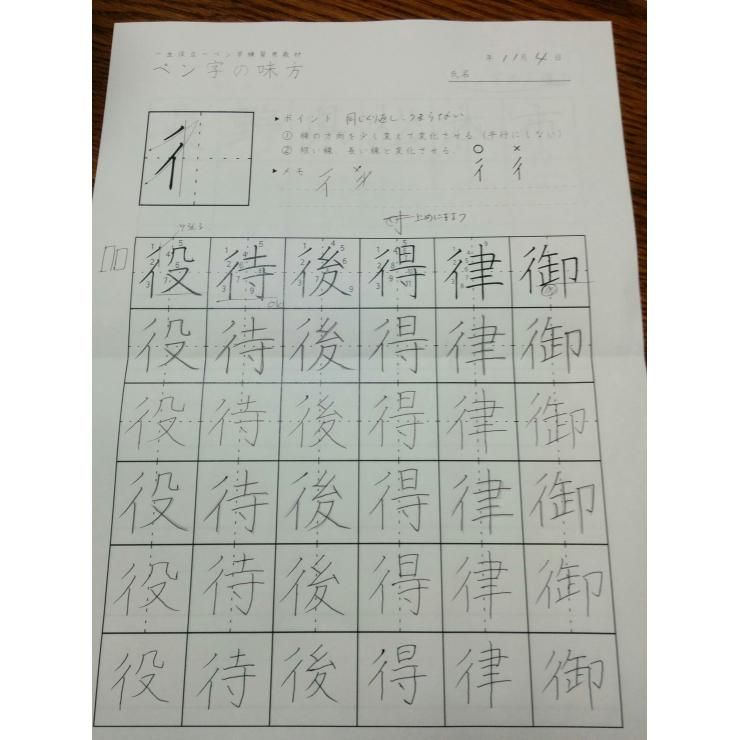 一生役立つペン字練習用教材
ペン字の味方
年 11月 4日
氏名
彳
▶ポイント 同じくり返し、つまらない
① 線の方向を少し変えて変化させる（平行にしない）
② 短い線、長い線と変化させる。
○ ×
▶メモ 彳 彳 彳 彳
役 待 後 得 律 御
役 待 後 得 律 御
役 待 後 得 律 御
役 待 後 得 律 御
役 待 後 得 律 御
役 待 後 得 律 御